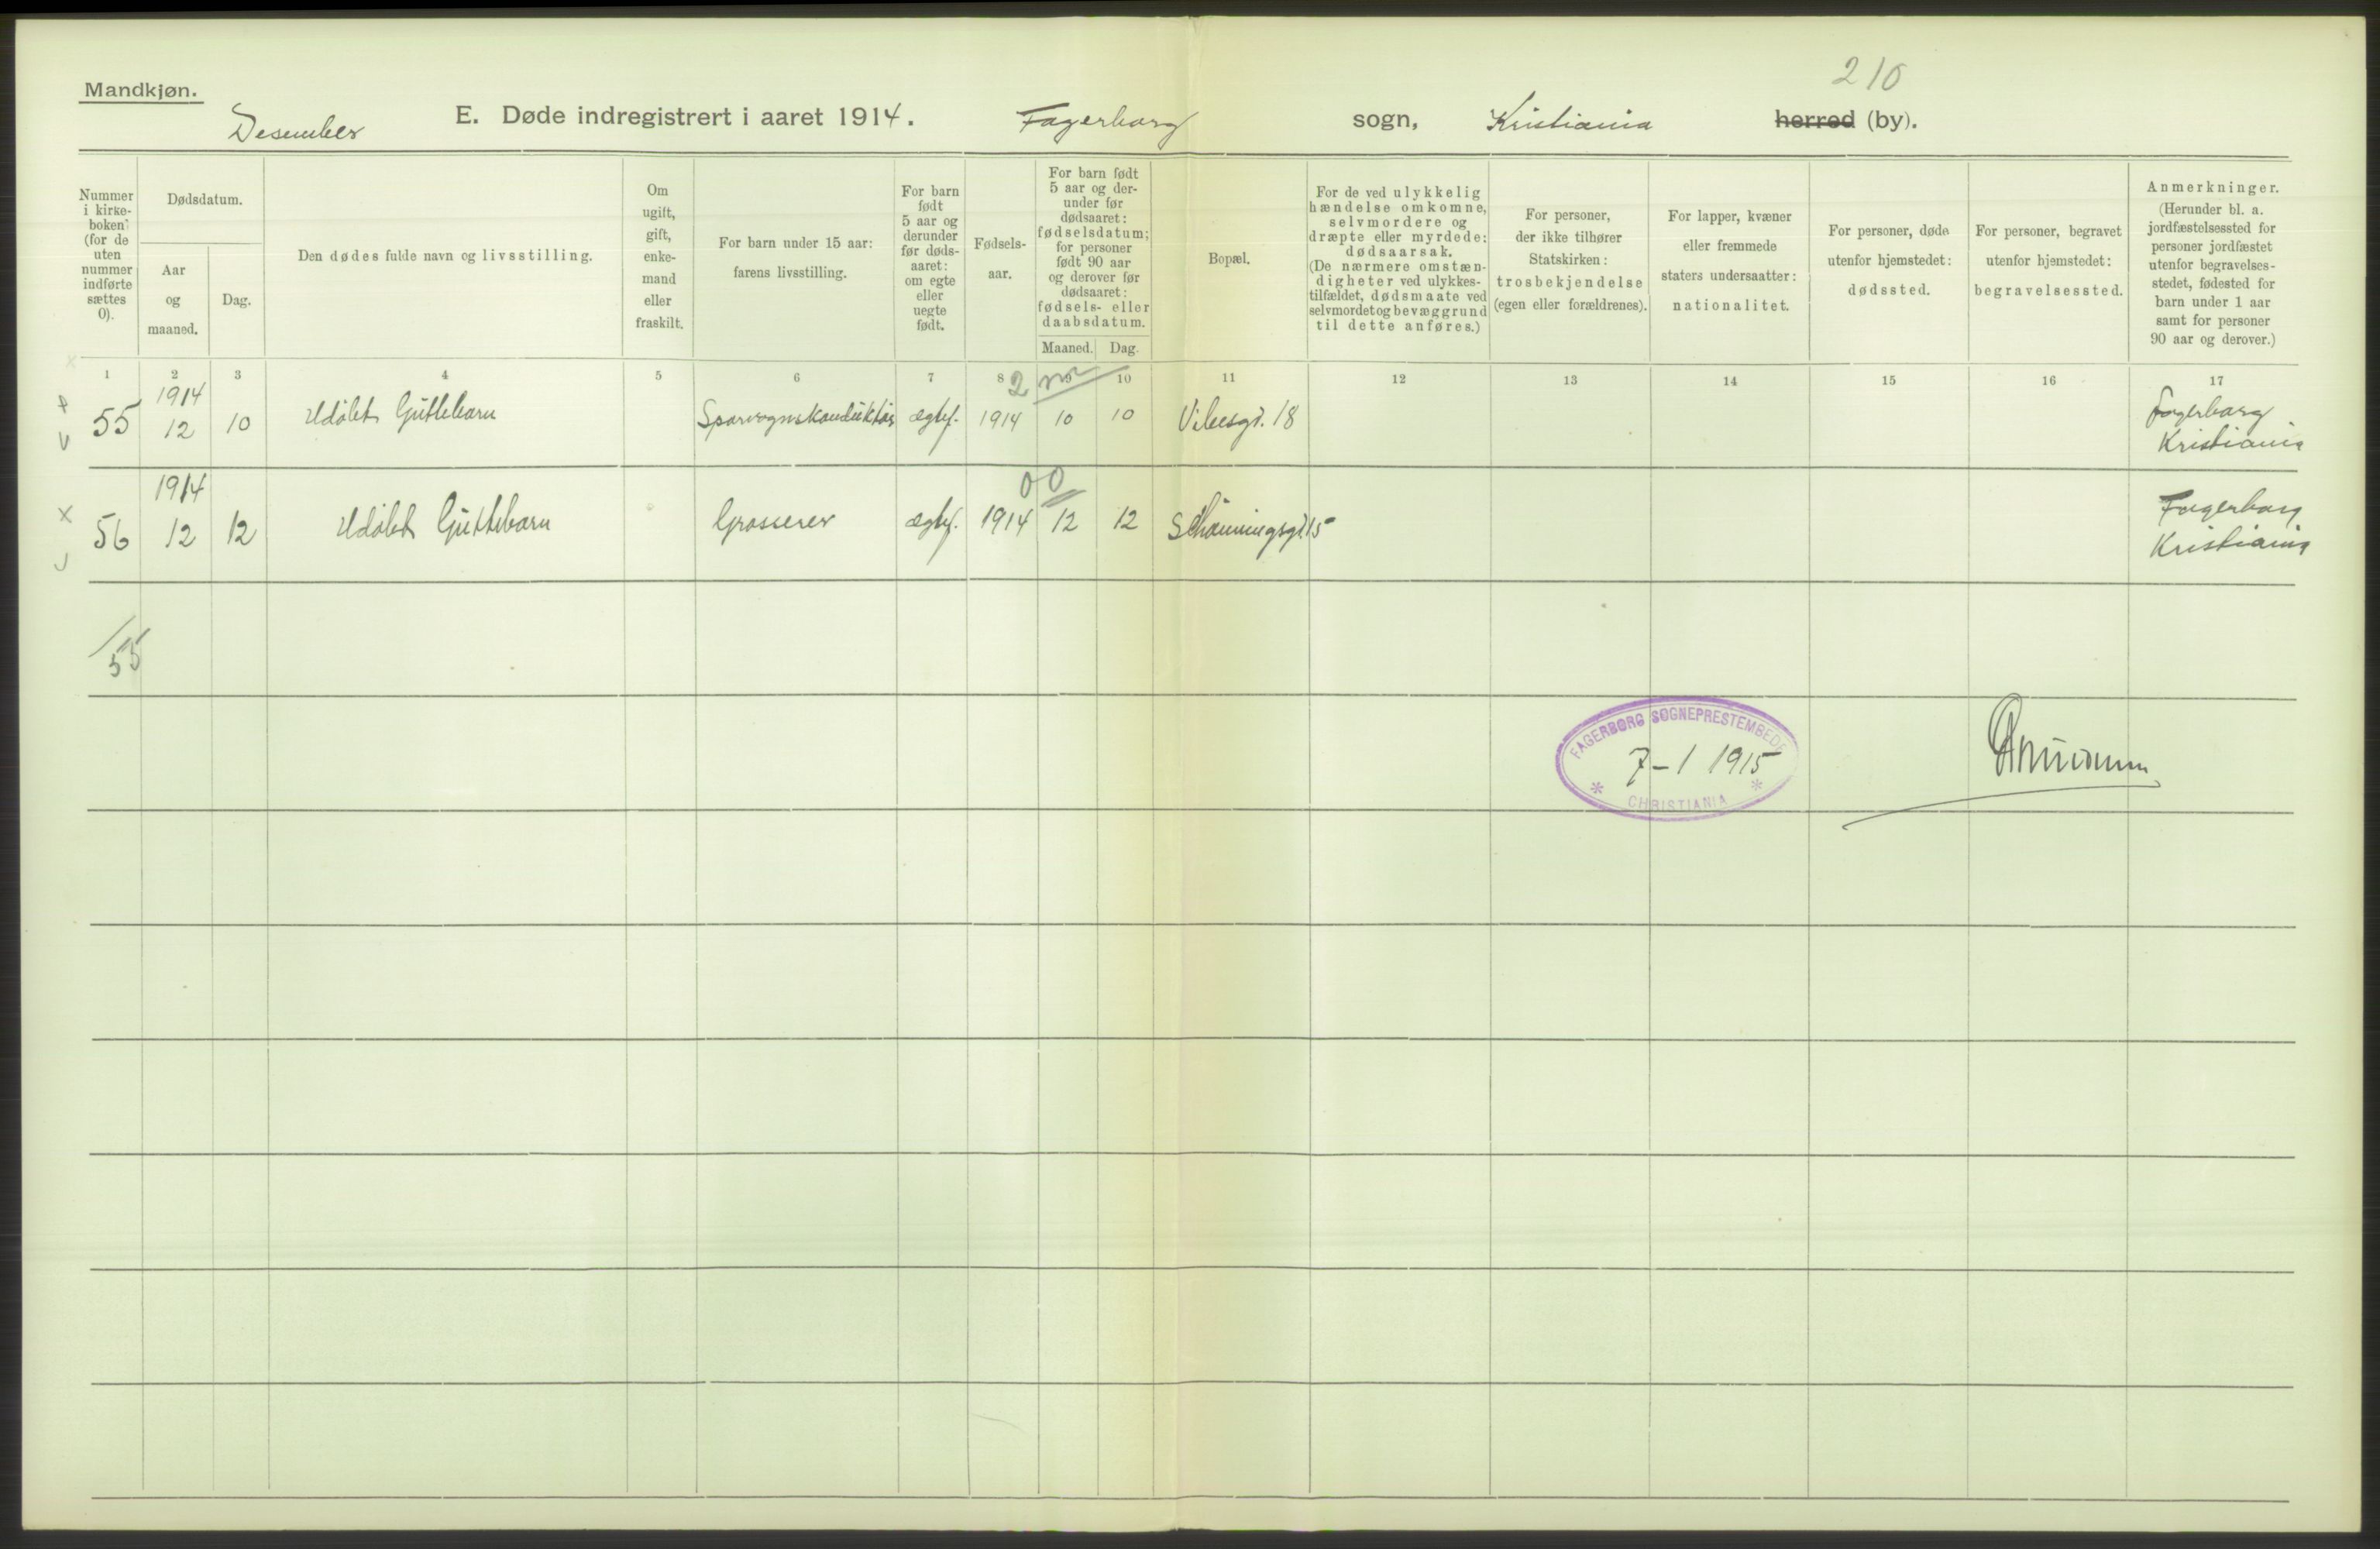 210
Mandkjøn.
Desember
E. Døde indregistrert i aaret 1914. Fagerborg sogn, Kristiania herred (by).
Nummer i kirke-boken (for de uten nummer indførte sættes 0).
Dødsdatum.
Aar og maaned.
Dag.
Den dødes fulde navn og livsstilling.
Om ugift, gift, enke-mand eller fraskilt.
For barn under 15 aar: farens livsstilling.
For barn født 5 aar og derunder før døds-aaret: om egte eller uegte født.
Fødsels-aar.
For barn født 5 aar og der-under før dødsaaret: fødselsdatum; for personer født 90 aar og derover før dødsaaret: fødsels- eller daabsdatum.
Maaned. Dag.
Bopæl.
For de ved ulykkelig hændelse omkomne, selvmordere og dræpte eller myrdede: dødsaarsak. (De nærmere omstæn-digheter ved ulykkes-tilfældet, dødsmaate ved selvmordet og bevæggrund til dette anføres.)
For personer, der ikke tilhører Statskirken: trosbekjendelse (egen eller forældrenes).
For lapper, kvæner eller fremmede staters undersaatter: nationalitet.
For personer, døde utenfor hjemstedet: dødssted.
For personer, begravet utenfor hjemstedet: begravelsessted.
Anmerkninger. (Herunder bl. a. jordfæstelsessted for personer jordfæstet utenfor begravelses-stedet, fødested for barn under 1 aar samt for personer 90 aar og derover.)
1 2 3 4 5 6 7 8 9 10 11 12 13 14 15 16 17
2 m
55 1914 12 10 Udøbt Guttebarn Sporvognskonduktør ægtef. 1914 10 10 Vibesgd. 18 Fagerborg Kristiania
00
56 1914 12 12 Udøbt Guttebarn Grosserer ægtef. 1914 12 12 Schønningsgd. 15 Fagerborg Kristiania
55
FAGERBORG SOGNEPRESTEMBEDE
7-1 1915
CHRISTIANIA